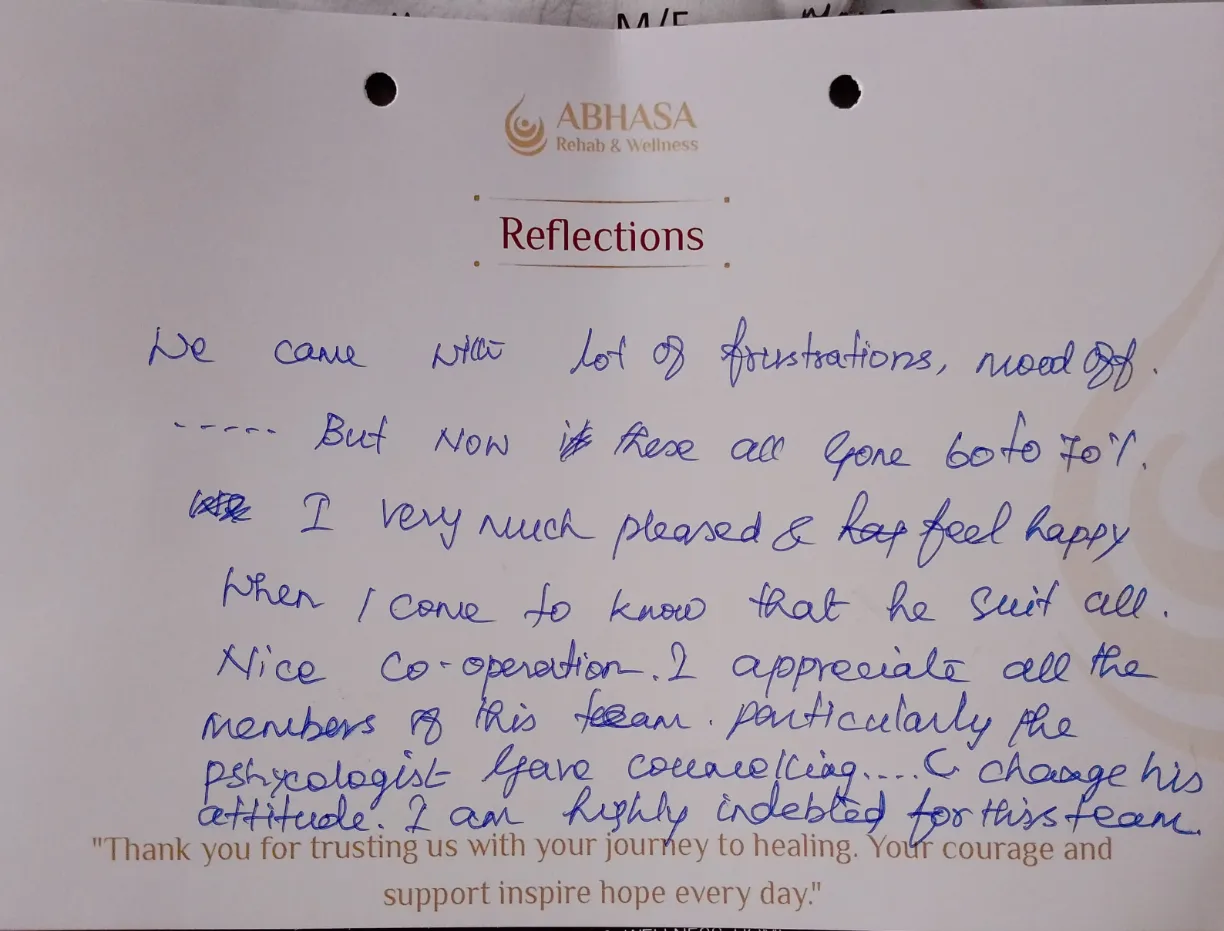 M/F
ABHASA
Rehab & Wellness
Reflections
We came with lot of frustrations, mood off.
----- But Now these all gone 60 to 70%.
I very much pleased & feel happy
When I come to know that he suit all.
Nice Co-operation. I appreciate all the
members of this team. particularly the
pshycologist gave councelling.... change his
attitude. I am highly indebted for this team.
"Thank you for trusting us with your journey to healing. Your courage and
support inspire hope every day."